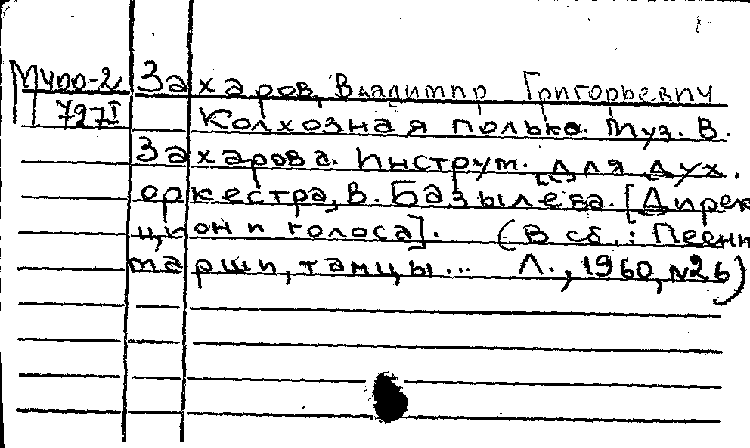 М400-2 Захаров, Владимир Григорьевич
727I Колхозная полька. Муз. В.
Захарова. Инструм. для дух.
оркестра, В. Базылева. [Дирек
цион и голоса]. (В сб.: Песни
марши, танцы... Л., 1960, №26)